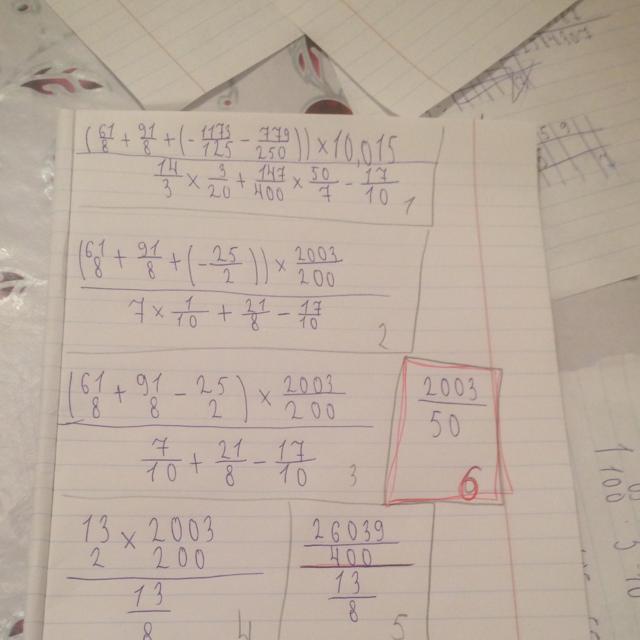 (61/8 + 91/8 + (- 1173/125 - 779/250)) × 10,015
14/3 × 3/20 + 147/400 × 50/7 - 17/10
1
(61/8 + 91/8 + (- 25/2)) × 2003/200
7 × 1/10 + 21/8 - 17/10
2
(61/8 + 91/8 - 25/2) × 2003/200
7/10 + 21/8 - 17/10
3
2003/50
6
13/2 × 2003/200
13/8
4
26039/400
13/8
5